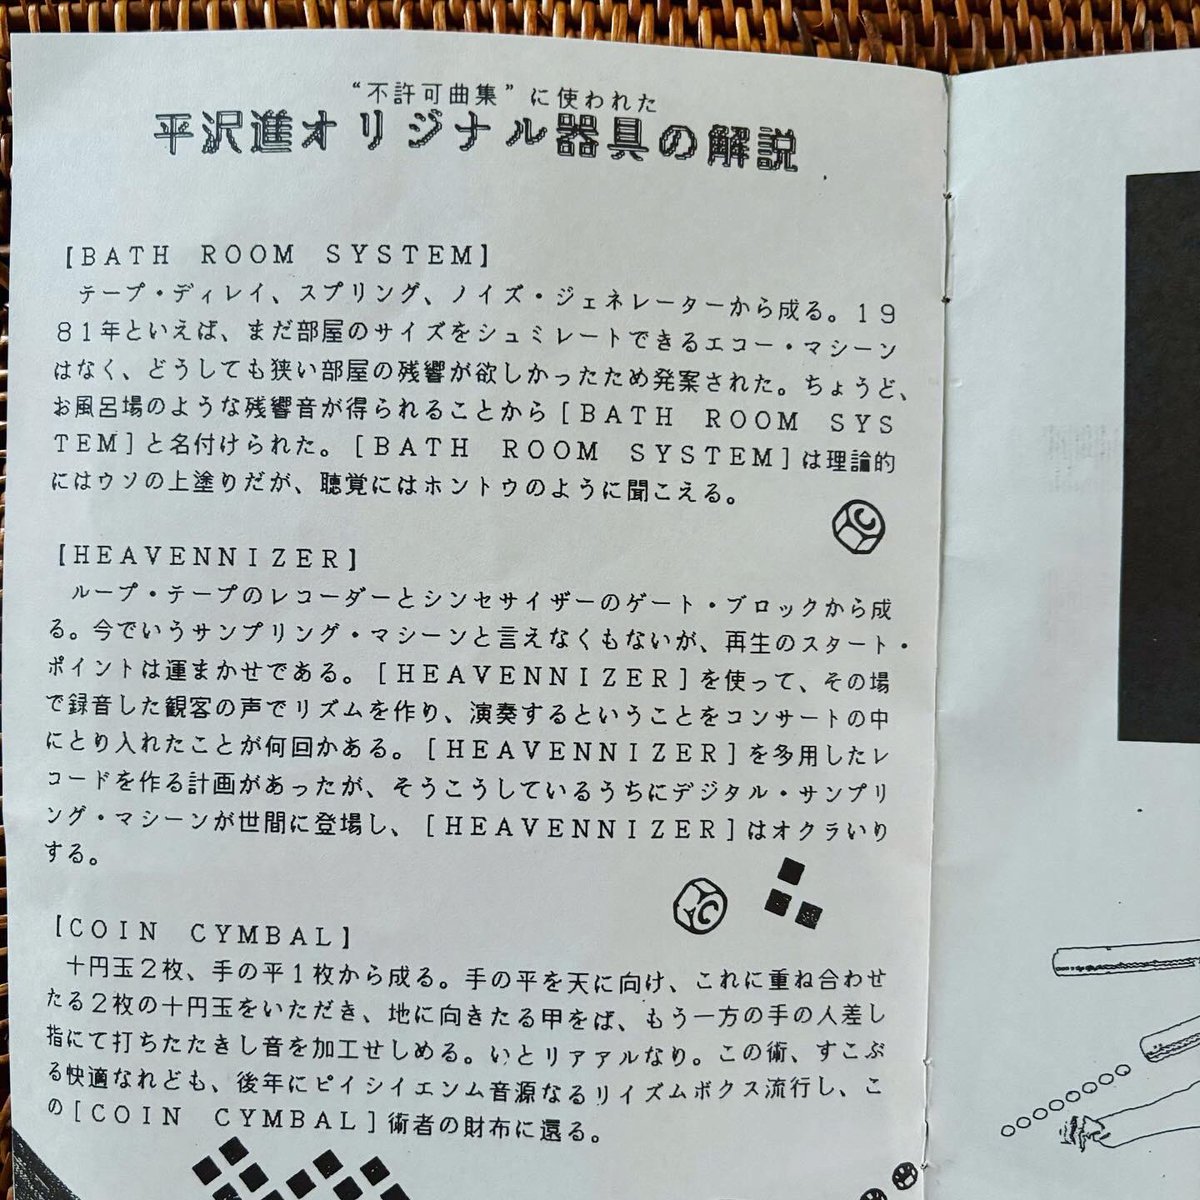 “不許可曲集”に使われた
平沢進オリジナル器具の解説
[BATH ROOM SYSTEM]
テープ・ディレイ、スプリング、ノイズ・ジェネレーターから成る。19
81年といえば、まだ部屋のサイズをシュミレートできるエコー・マシーン
はなく、どうしても狭い部屋の残響が欲しかったため発案された。ちょうど、
お風呂場のような残響音が得られることから[BATH ROOM SYS
TEM]と名付けられた。[BATH ROOM SYSTEM]は理論的
にはウソの上塗りだが、聴覚にはホントウのように聞こえる。
C
[HEAVENNIZER]
ループ・テープのレコーダーとシンセサイザーのゲート・ブロックから成
る。今でいうサンプリング・マシーンと言えなくもないが、再生のスタート・
ポイントは運まかせである。[HEAVENNIZER]を使って、その場
で録音した観客の声でリズムを作り、演奏するということをコンサートの中
にとり入れたことが何回かある。[HEAVENNIZER]を多用したレ
コードを作る計画があったが、そうこうしているうちにデジタル・サンプリ
ング・マシーンが世間に登場し、[HEAVENNIZER]はオクラいり
する。
C
[COIN CYMBAL]
十円玉2枚、手の平1枚から成る。手の平を天に向け、これに重ね合わせ
たる2枚の十円玉をいただき、地に向きたる甲をば、もう一方の手の人差し
指にて打ちたたきし音を加工せしめる。いとリアアルなり。この術、すこぶ
る快適なれども、後年にピイシイエンム音源なるリイズムボクス流行し、こ
の[COIN CYMBAL]術者の財布に還る。